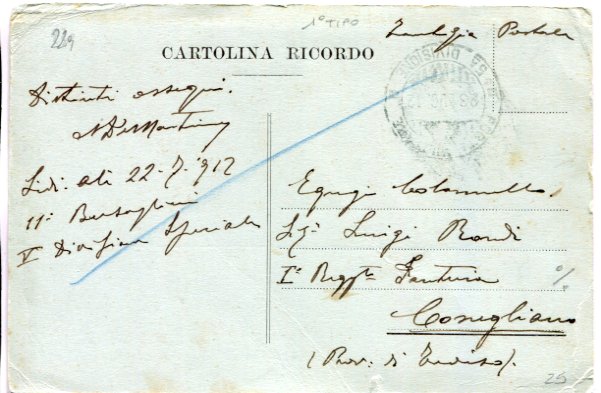 229
1° TIPO
Franchigia Postale
CARTOLINA RICORDO
5a DIVISIONE
Distinti ossequi.
N De Martino
Sidi: alì 22-7-912
11° Bersaglieri
V Divisione Speciale
Egregio Colonnello
Sig. Luigi
I° Regg.to Fanteria
Conegliano
(Prov: di Treviso).
25